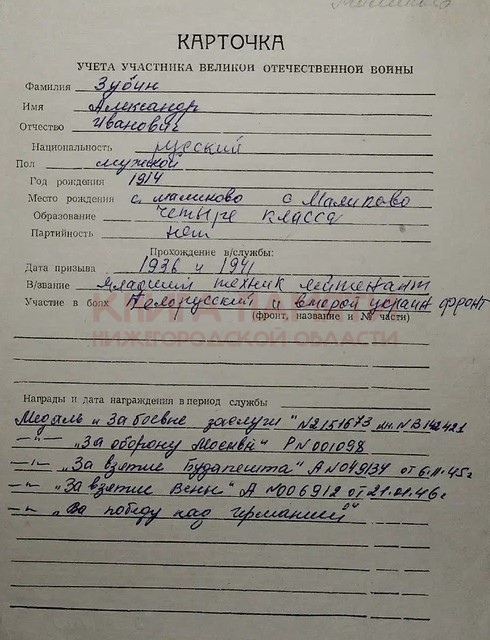 КАРТОЧКА
УЧЕТА УЧАСТНИКА ВЕЛИКОЙ ОТЕЧЕСТВЕННОЙ ВОЙНЫ
Фамилия Зубин
Имя Александр
Отчество Иванович
Национальность русский
Пол мужской
Год рождения 1914
Место рождения с. Маликово с Маликово
Образование четыре класса
Партийность нет
Прохождение в/службы:
Дата призыва 1936 и 1941
В/звание младший техник лейтенант
Участие в боях Белорусский и второй украин фронт
(фронт, название и № части)
КНИГА ПАМЯТИ
НИЖЕГОРОДСКОЙ ОБЛАСТИ
Награды и дата награждения в период службы
Медаль "За боевые заслуги" N2151673 N В142421
—"— "За оборону Москвы" Р N001098
—"— "За взятие Будапешта" А N049134 от 6.11.45г
—"— "За взятие Вены" А N006912 от 21.01.46г
—"— "За победу над Германией"